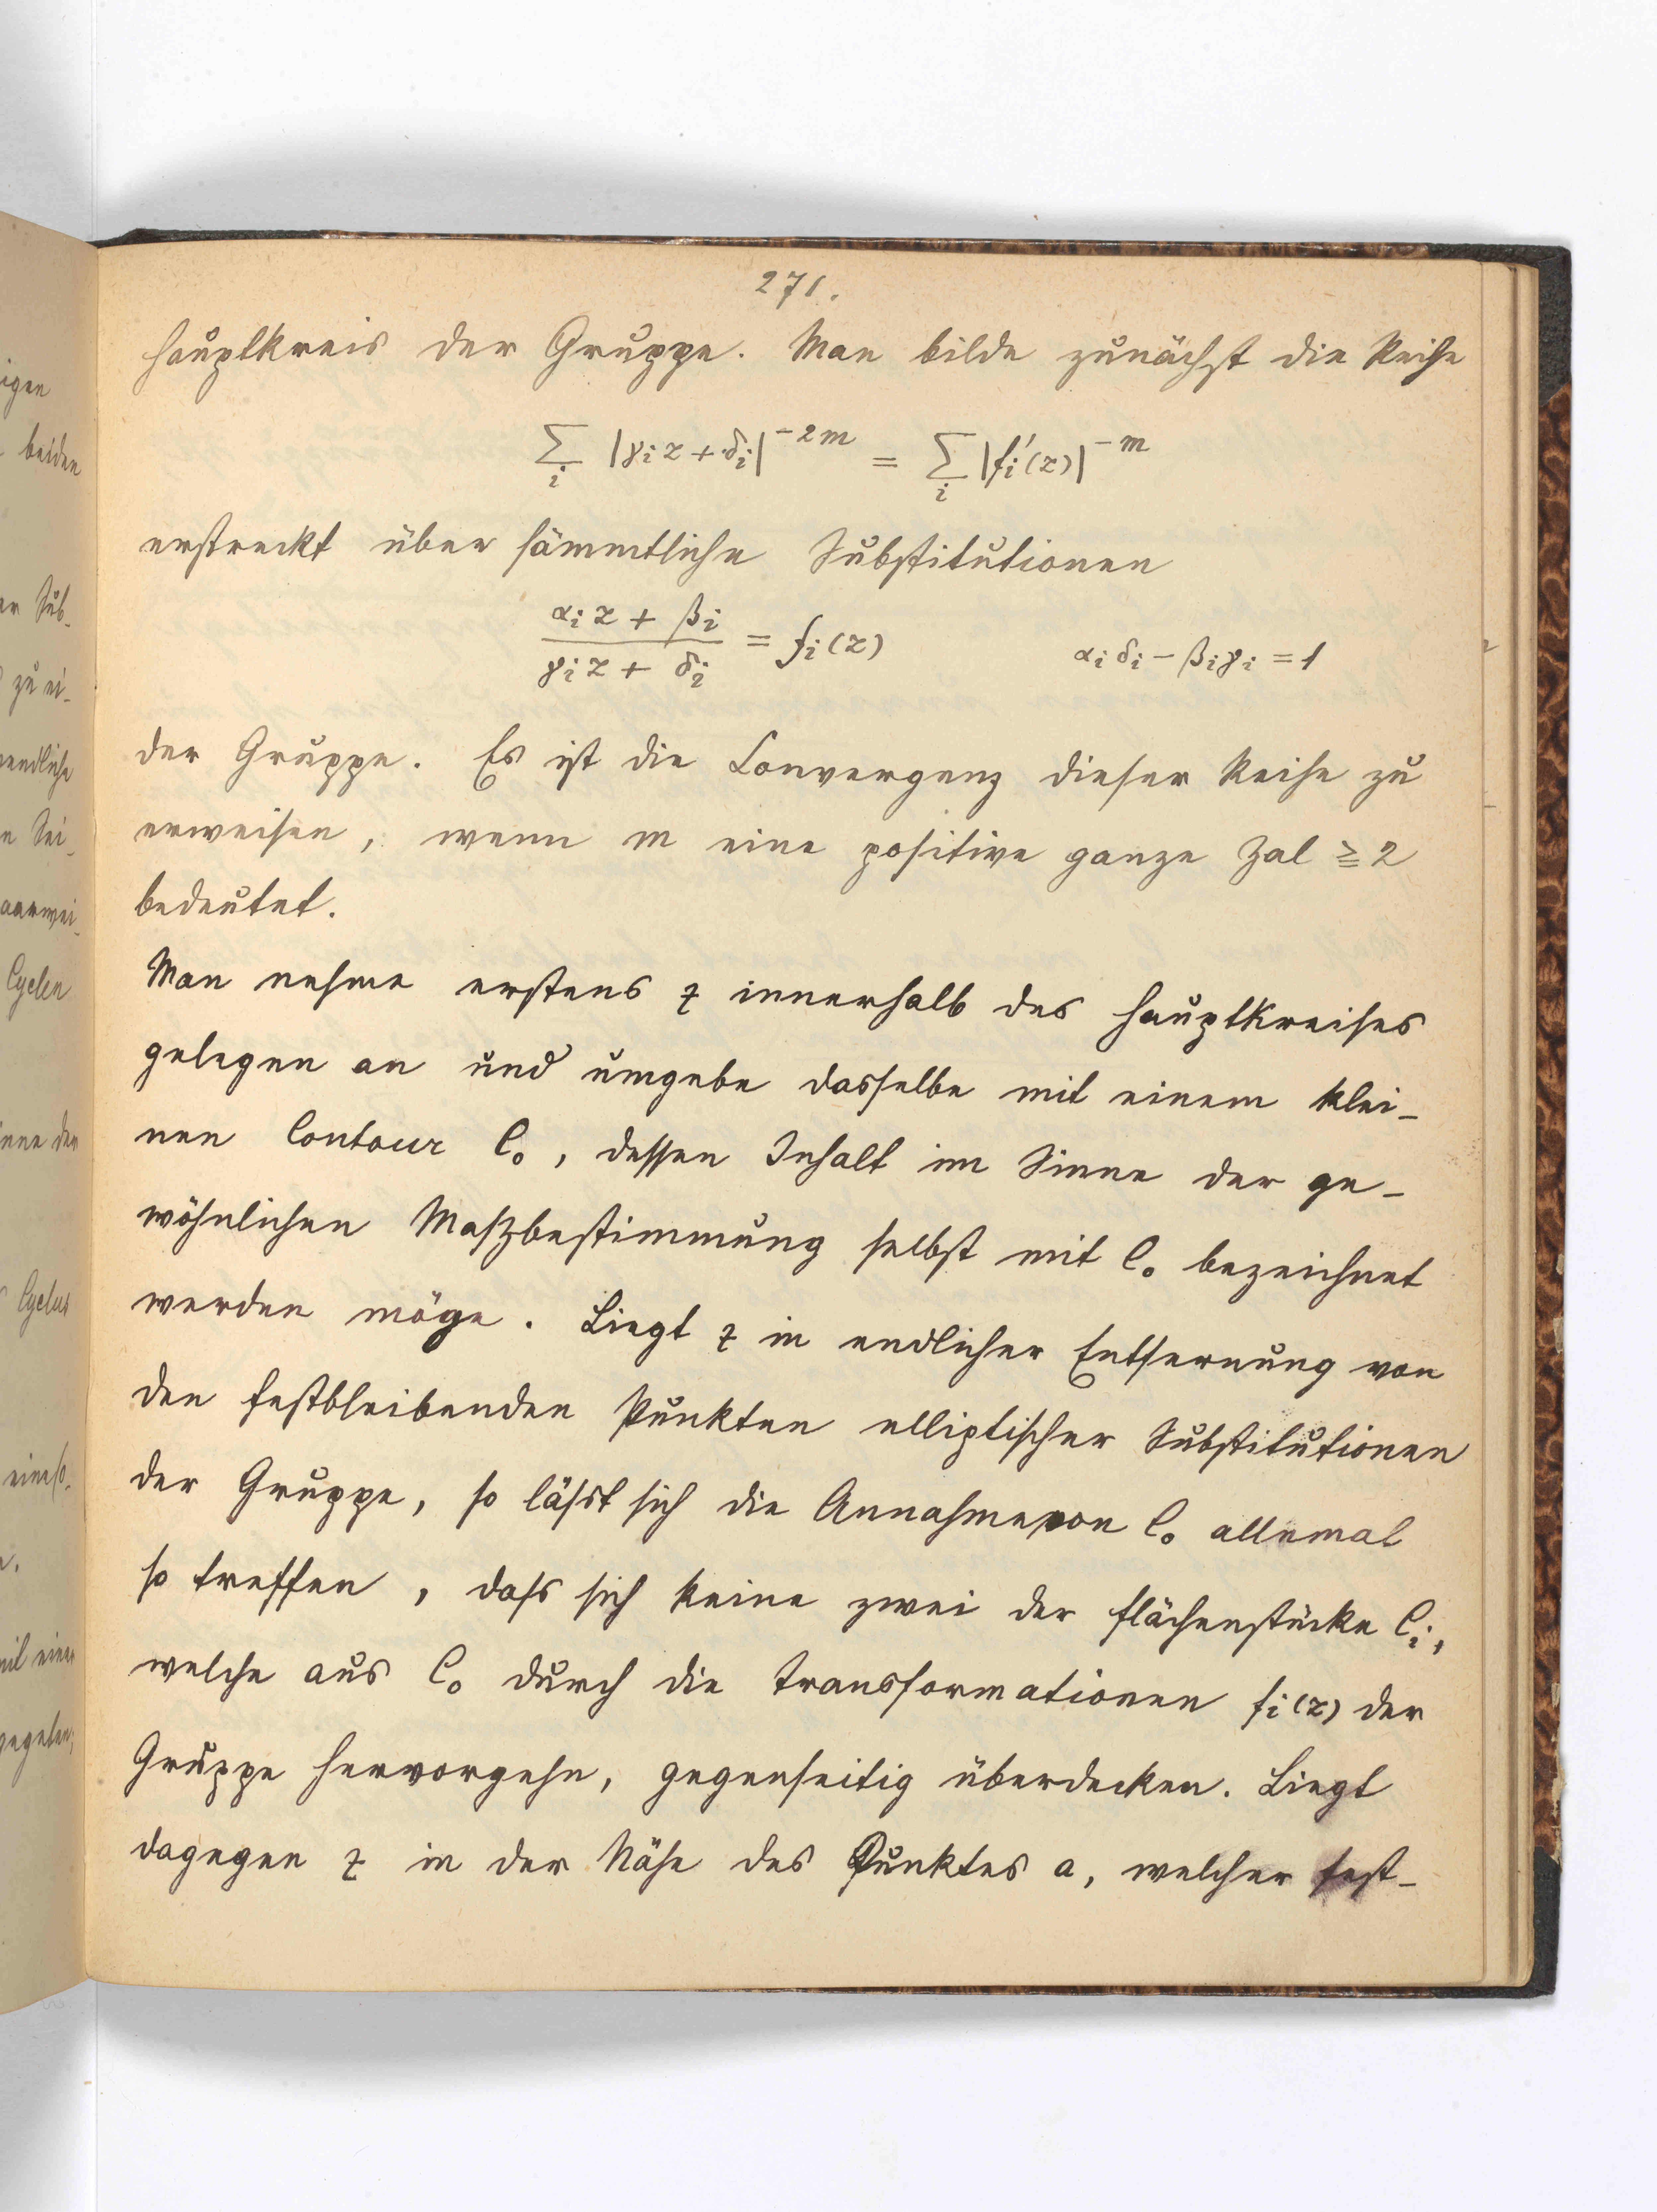 271.
Hauptkreis der Gruppe. Man bilde zunächst die Reihe
∑_i |γ_i z + δ_i|^{-2m} = ∑_i |f_i'(z)|^{-m}
erstreckt über sämmtliche Substitutionen
(α_i z + β_i)/(γ_i z + δ_i) = f_i(z)    α_i δ_i − β_i γ_i = 1
der Gruppe. Es ist die Convergenz dieser Reihe zu
erweisen, wenn m eine positive ganze Zal ≧ 2
bedeutet.
Man nehme erstens z innerhalb des Hauptkreises
gelegen an und umgebe dasselbe mit einem klei-
nen Contour C_0, dessen Inhalt im Sinne der ge-
wöhnlichen Maßbestimmung selbst mit C_0 bezeichnet
werden möge. Liegt z in endlicher Entfernung von
den festbleibenden Punkten elliptischer Substitutionen
der Gruppe, so läßt sich die Annahme von C_0 allemal
so treffen, daß sich keine zwei der Flächenstücke C_i,
welche aus C_0 durch die Transformationen f_i(z) der
Gruppe hervorgehn, gegenseitig überdecken. Liegt
dagegen z in der Nähe des Punktes a, welcher fest-
igen
beiden
er Sub-
zu ei-
endliche
Cyclen
Cyclus
mit einer
gegeben;